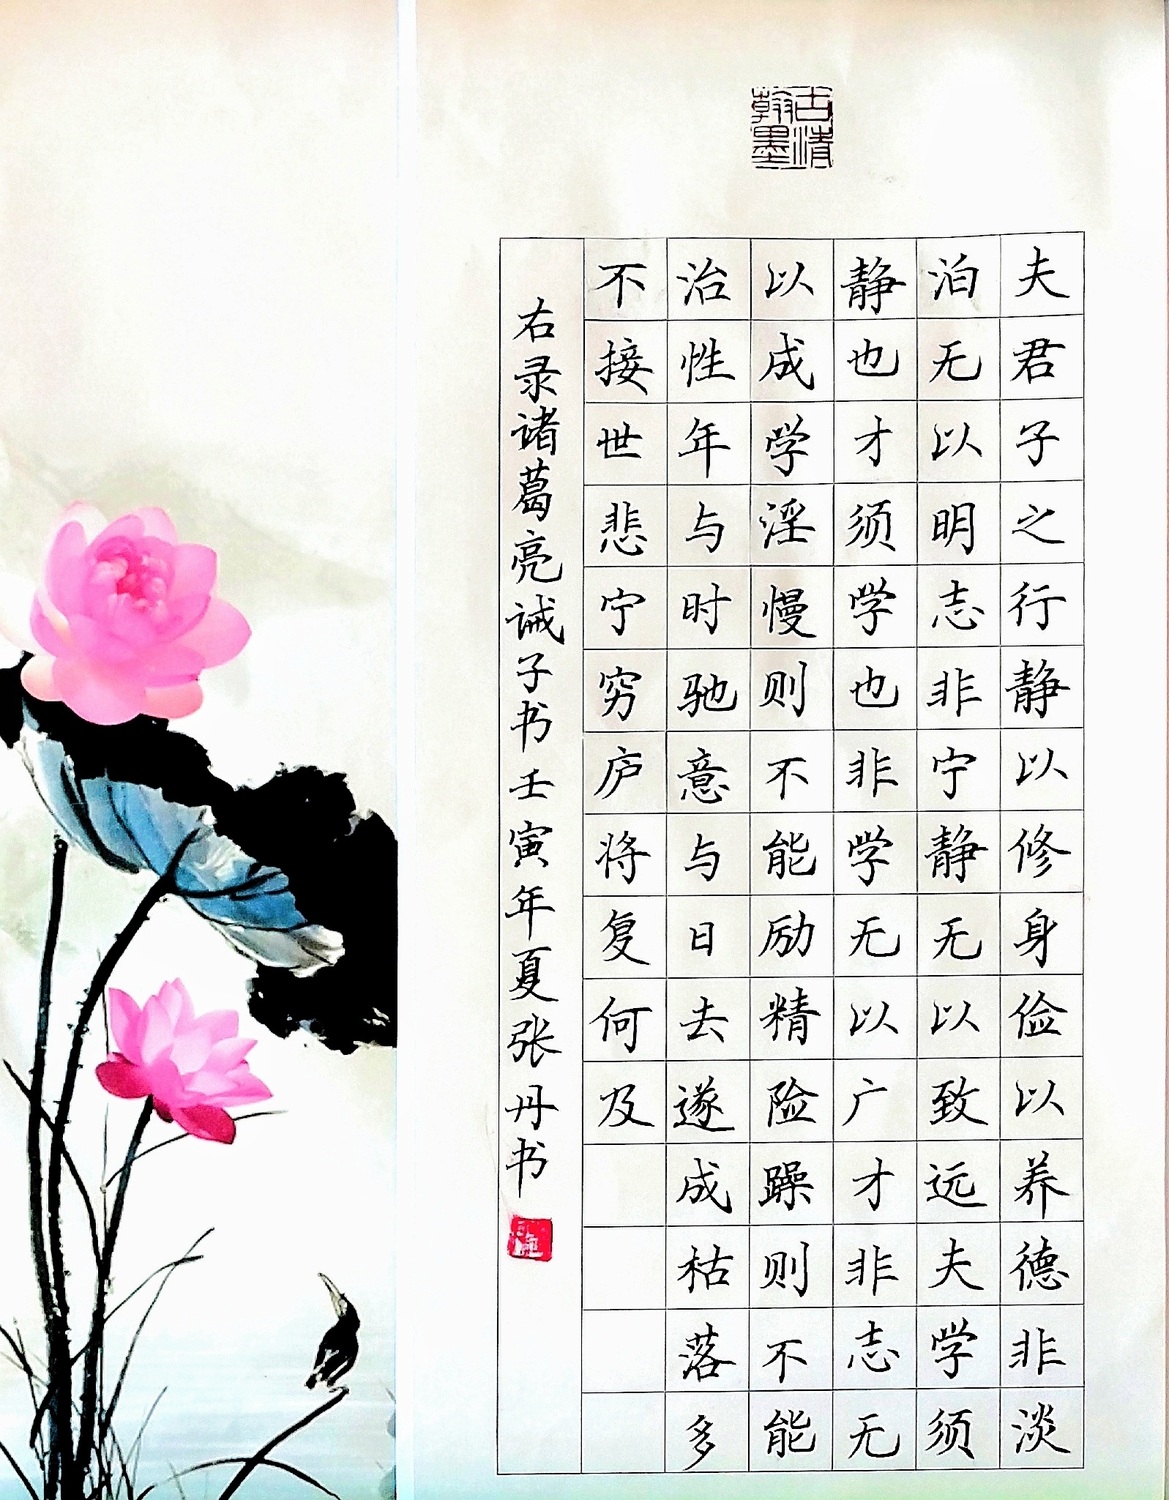 古清翰墨
夫君子之行静以修身俭以养德非淡
泊无以明志非宁静无以致远夫学须
静也才须学也非学无以广才非志无
以成学淫慢则不能励精险躁则不能
治性年与时驰意与日去遂成枯落多
不接世悲守穷庐将复何及
右录诸葛亮诫子书壬寅年夏张丹书